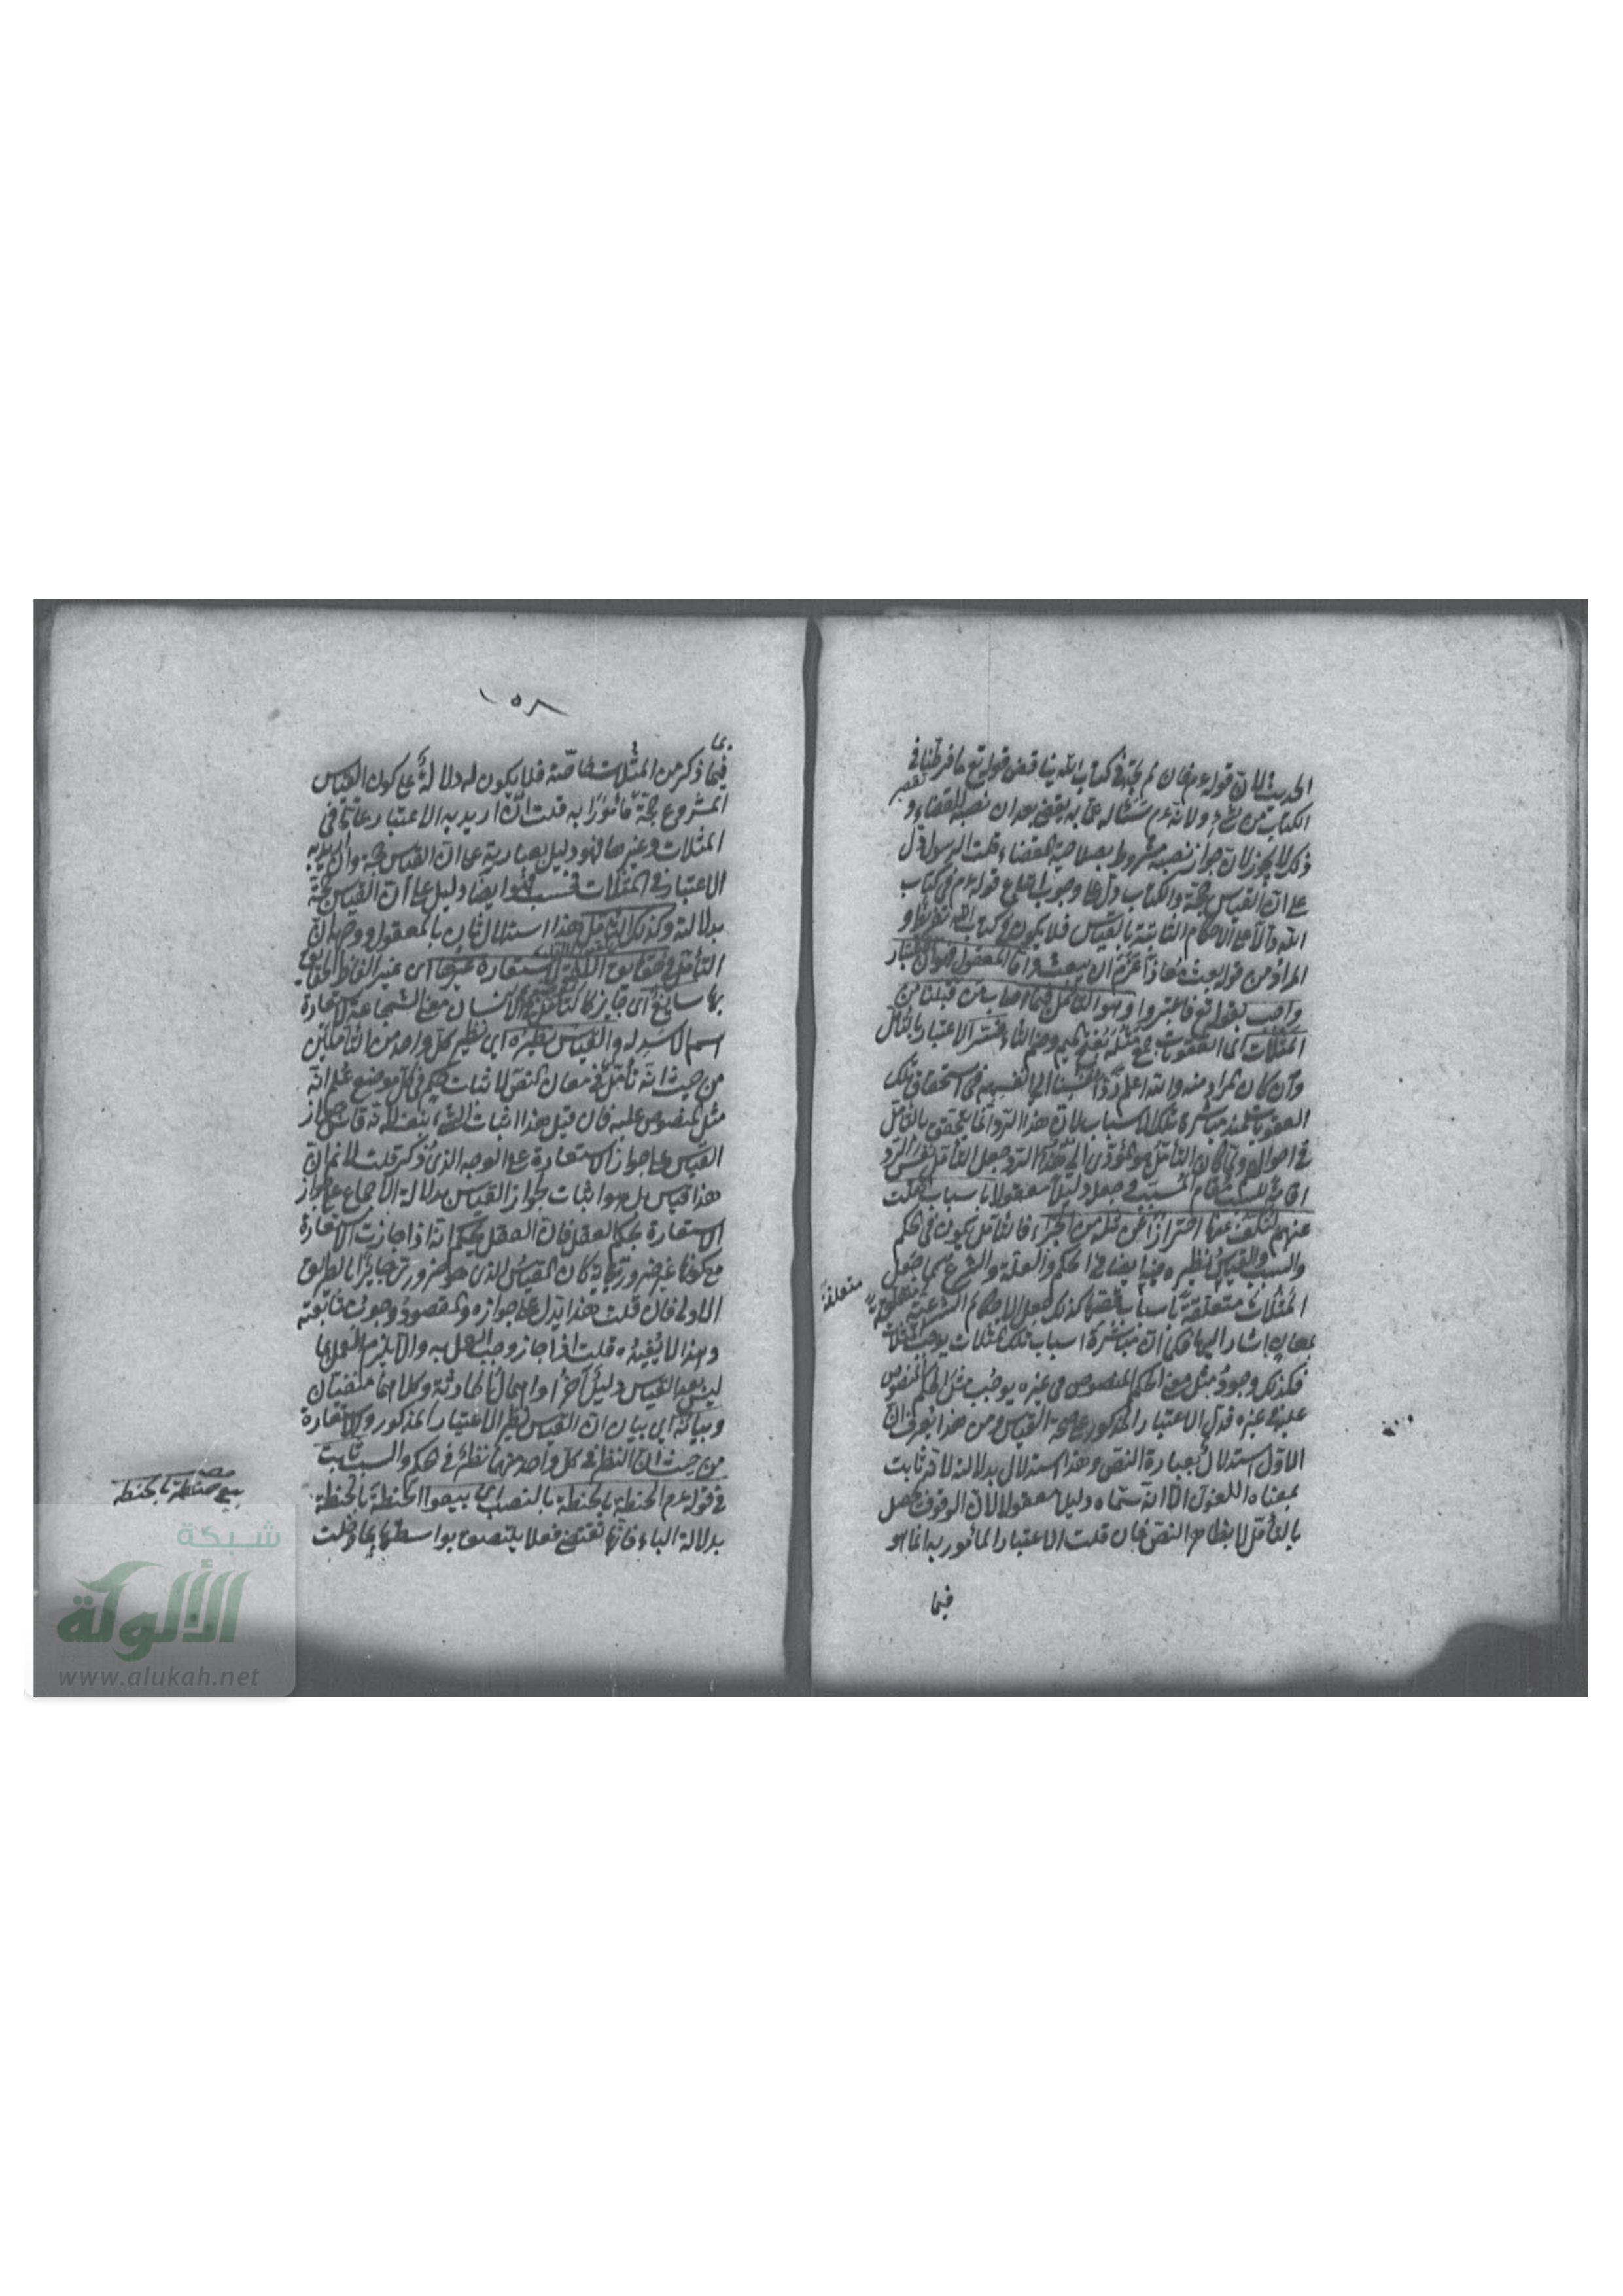 الحديث لان قوله عم فان لم تجد في كتاب الله يناقض قوله تع ما فرطنا في
الكتاب من شيء ولانه عم سئاله عما به يقضي بعد ان نصبه للقضاء و
ذلك لا يجوز لان جواز نصبه مشروط بصلاحية القضاء قلت الرسول دل
على ان القياس حجة والكتاب دل على وجوب اتباع قوله عم في كتاب
الله دالا على الاحكام الثابتة بالقياس فلا يكون في كتاب الله تفريط و
المراد من قوله بعث معاذا عزم ان يبعث واما المعقول فهو ان الاعتبار
واجب بقوله تع فاعتبروا وهو التأمل فيما اصاب من قبلنا من
المثلات اى العقوبات جمع مثلة بفتح الميم وضم الثاء فسر الاعتبار بالتأمل
وان كان المراد منه والله اعلم رد انفسنا الى انفسهم في استحقاق تلك
العقوبات عند مباشرة تلك الاسباب لان هذا الرد انما يتحقق بالتأمل
في احوالهم ولما كان التأمل هو المؤدى الى هذا الرد جعل التأمل نفس الرد
اقامة للسبب مقام المسبب في جعله دليلا معقولا باسباب نقلت
عنهم لنكف عنها احترازا عن مثله من الجزاء فالتأمل يكون في الحكم
والسبب والقياس نظيره فيه ايضا في الحكم والعلة والشرع كما جعل
المثلات متعلقة باسباب قصها كذلك جعل الاحكام الشرعية متعلقة
متعلقة
بمعان اشار اليها فكما ان مباشرة اسباب تلك المثلات يوجب المثلات
فكذلك وجود مثل معنى الحكم المنصوص في غيره يوجب مثل الحكم المنصوص
عليه في غيره فدل الاعتبار المذكور على صحة القياس ومن هذا يعرف ان
الاول استدلال بعبارة النص وهذا استدلال بدلالته لانه ثابت
بمعناه اللغوى الا انه سماه دليلا معقولا لان الوقوف يحصل
بالتأمل لا بظاهر النص فان قلت الاعتبار المأمور به انما هو
فيما
١٥٨
فيما ذكر من المثلات خاصة فلا يكون له دلالة على كون القياس
المشروع حجة مأمورا به قلت ان اريد به الاعتبار عاما في
المثلات وغيرها فهو دليل بعبارته على ان القياس حجة وان اريد به
الاعتبار في المثلات فحسب فهو ايضا دليل على ان القياس حجة
بدلالته وكذلك التأمل هذا استدلال ثان بالمعقول ووجهه ان
التأمل في حقايق اللغة لاستعارة غيرها اى غير الفاظ الحقايق
بها سايغ اى جايز كالتأمل في الانسان معنى الشجاعة لاستعارة
اسم الاسد له والقياس نظيره اى نظير كل واحد من التأملين
من حيث انه تأمل في معان النص لاثبات حكم في كل موضع علم انه
مثل المنصوص عليه فان قيل هذا اثبات الشيء بنفسه لانه قاس جواز
القياس على جواز الاستعارة على الوجه الذى ذكر قلت لا نم ان
هذا قياس بل هو اثبات جواز القياس بدلالة الاجماع على جواز
الاستعارة بحكم العقل فان العقل يحكم انه اذا جازت الاستعارة
مع كونها غير ضرورية كان القياس الذى هو ضرورى جايزا بالطريق
الاولى فان قلت هذا يدل على جوازه والمقصود وجوب متابعته
وهذا لا يفيده قلت اذا جاز وجب العمل به والا يلزم العمل بما
ليس بعد القياس دليل آخر او اهمال الحادثة وكلاهما منتفيان
وبيانه اى بيان ان القياس نظير الاعتبار المذكور والاستعارة
من حيث ان النظر في كل واحد منهما نظر في الحكم والسبب ثابت
في قوله عم الحنطة بالحنطة بالنصب اى بيعوا الحنطة بالحنطة
بيع حنطة بالحنطة
بدلالة الباء فانها تقتضي فعلا يلتصق بواسطتها بما دخلت
شبكة
الألوكة
www.alukah.net